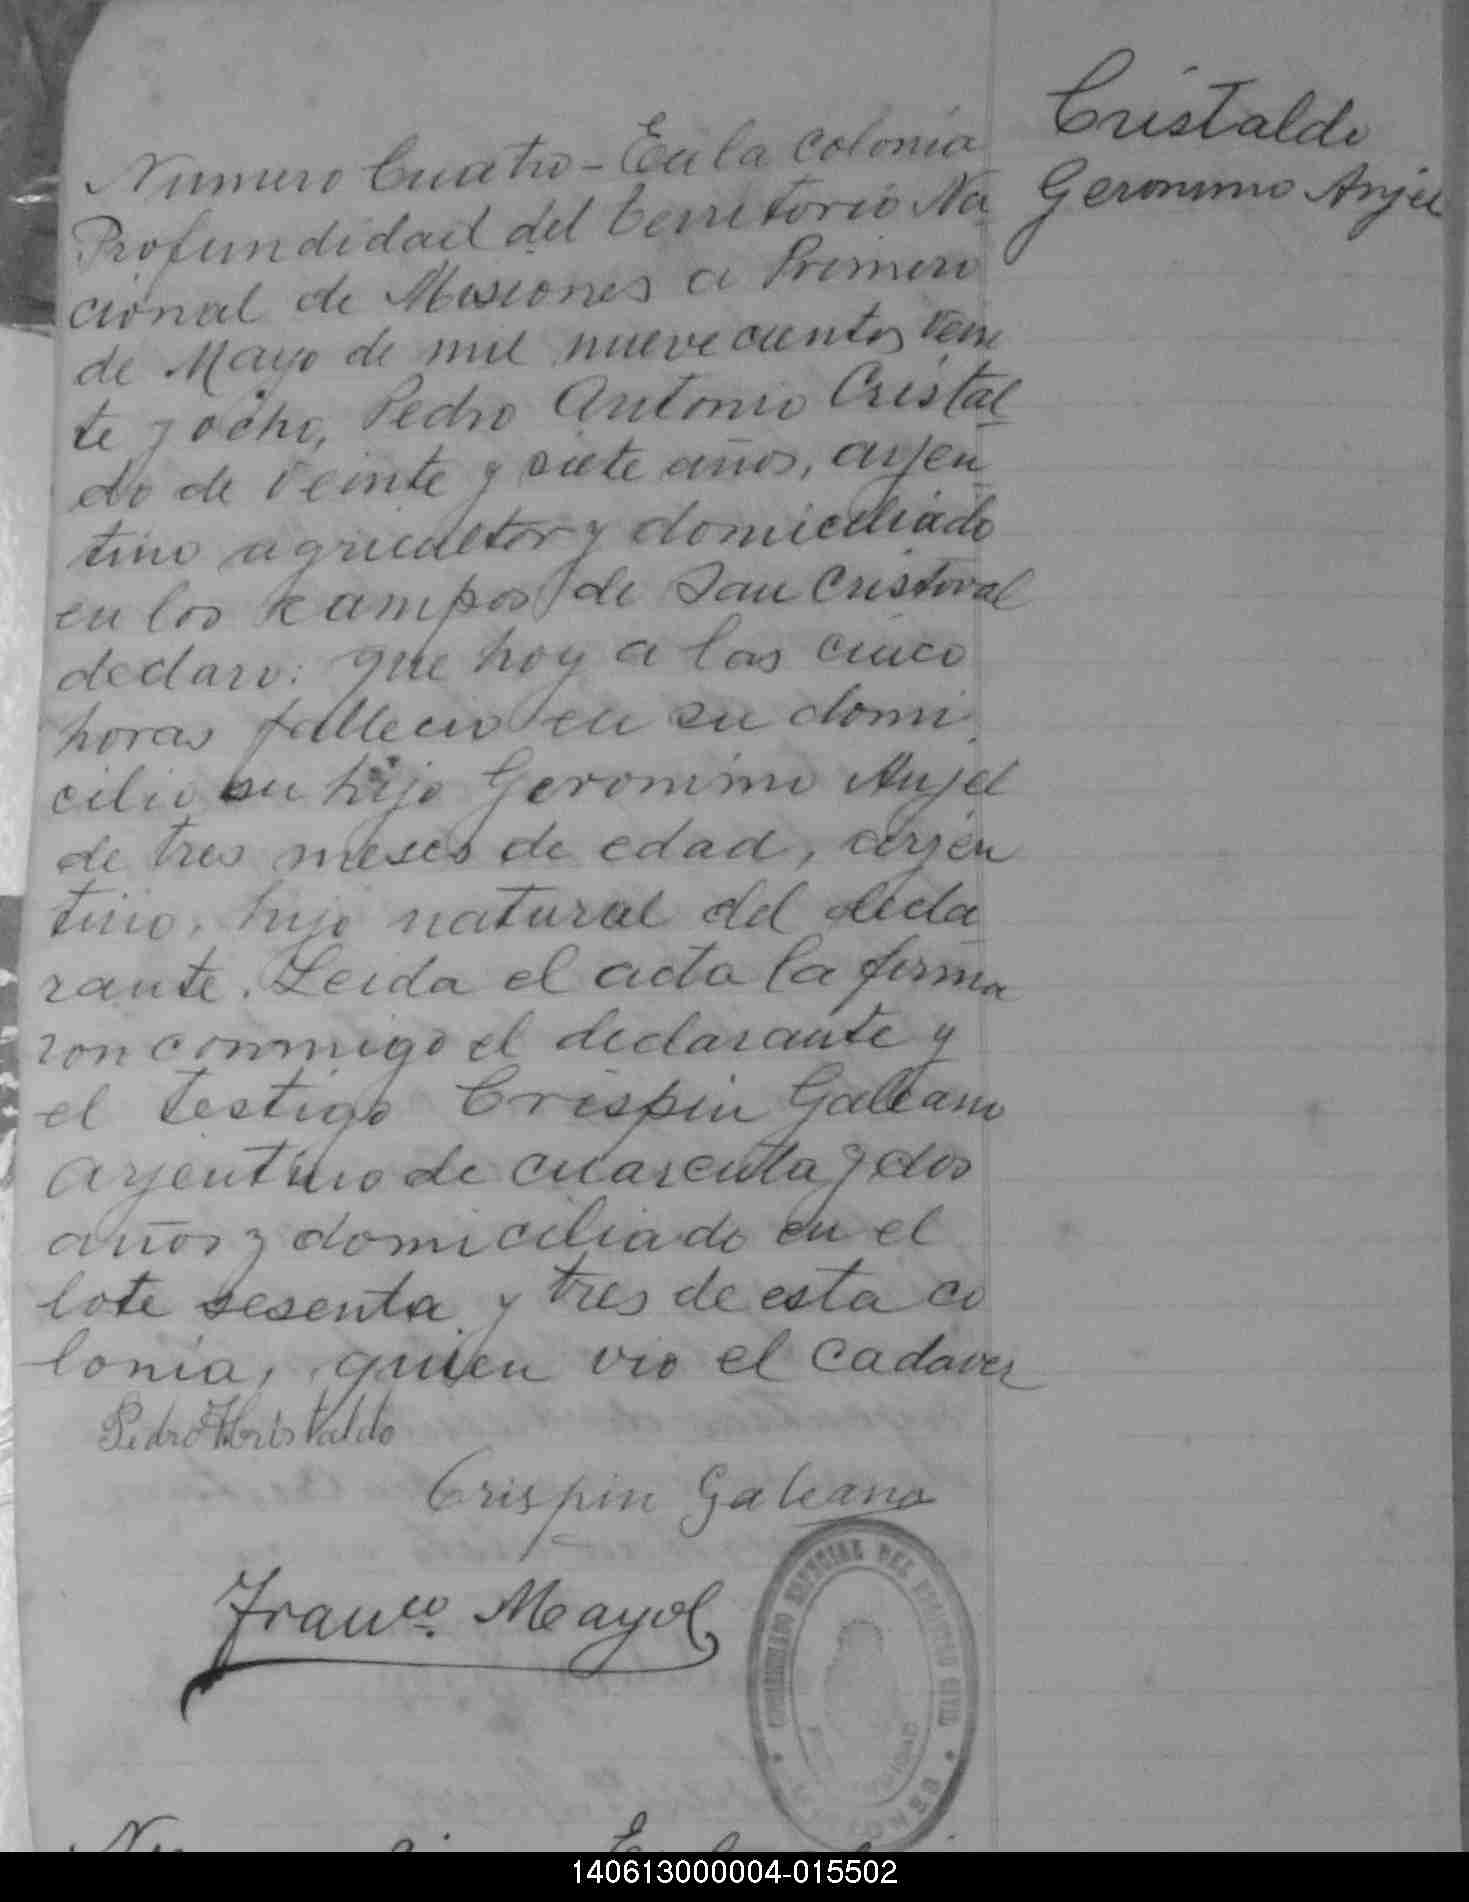 Cristaldo
Geronimo Anjel
Numero Cuatro - En la colonia
Profundidad del territorio Na
cional de Misiones a Primero
de Mayo de mil nuevecientos vein
te y ocho, Pedro Antonio Cristal
do de veinte y siete años, arjen
tino agricultor y domiciliado
en los campos de San Cristoval
declaro: que hoy a las cinco
horas fallecio en su domi
cilio su hijo Geronimo Anjel
de tres meses de edad, arjen
tino, hijo natural del decla
rante. Leida el acta la firma
ron conmigo el declarante y
el testigo Crispin Galeano
arjentino de cuarenta y dos
años y domiciliado en el
lote sesenta y tres de esta co
lonia, quien vio el cadaver
Pedro A Cristaldo
Crispin Galeano
Franco. Mayol
ESPECIAL DEL REGISTRO CIVIL
140613000004-015502